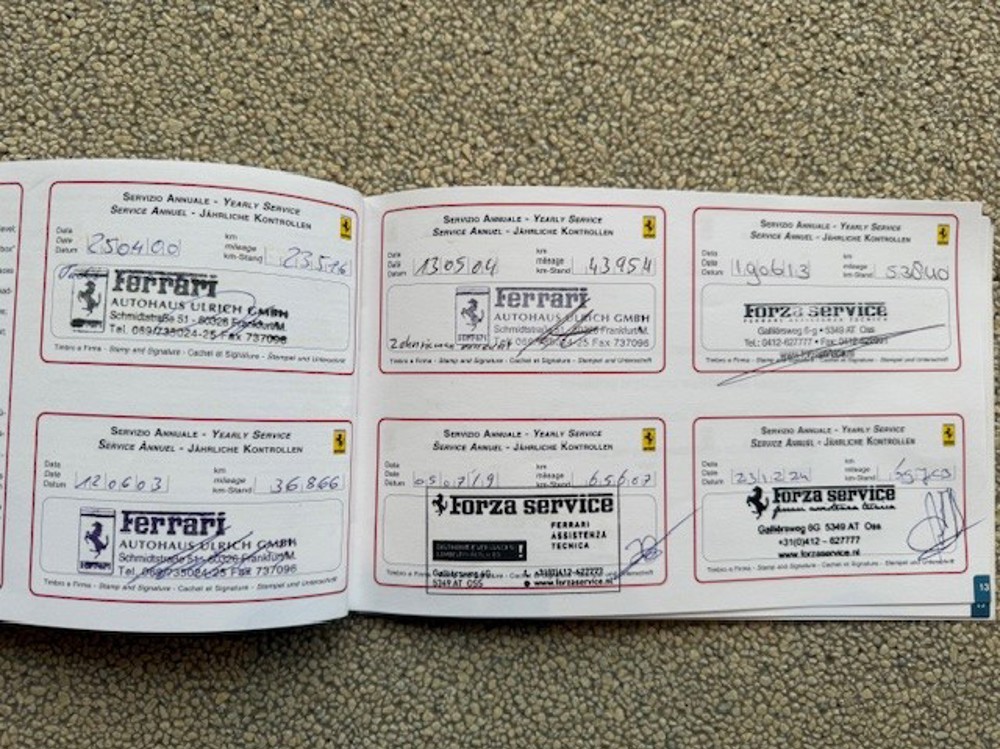 SERVIZIO ANNUALE - YEARLY SERVICE
SERVICE ANNUEL - JÄHRLICHE KONTROLLEN
Data
Date
Datum
250400
km
mileage
km-Stand
Ferrari
AUTOHAUS ULRICH GMBH
Schmidtstraße 51 - 60326 Frankfurt/M.
Tel. 069/735024-25 Fax 737096
Timbro e Firma - Stamp and Signature - Cachet et Signature - Stempel und Unterschrift
SERVIZIO ANNUALE - YEARLY SERVICE
SERVICE ANNUEL - JÄHRLICHE KONTROLLEN
Data
Date
Datum
120603
km
mileage
km-Stand
36866
Ferrari
AUTOHAUS ULRICH GMBH
Schmidtstraße 51 - 60326 Frankfurt/M.
Tel. 069/735024-25 Fax 737096
Timbro e Firma - Stamp and Signature - Cachet et Signature - Stempel und Unterschrift
SERVIZIO ANNUALE - YEARLY SERVICE
SERVICE ANNUEL - JÄHRLICHE KONTROLLEN
Data
Date
Datum
130504
km
mileage
km-Stand
43954
Ferrari
AUTOHAUS ULRICH GMBH
Schmidtstraße 51 - 60326 Frankfurt/M.
Tel. 069/735024-25 Fax 737096
Timbro e Firma - Stamp and Signature - Cachet et Signature - Stempel und Unterschrift
SERVIZIO ANNUALE - YEARLY SERVICE
SERVICE ANNUEL - JÄHRLICHE KONTROLLEN
Data
Date
Datum
050719
km
mileage
km-Stand
65607
forza service
FERRARI
ASSISTENZA
TECNICA
Galliërsweg 6G
5349 AT OSS
+31(0)412-627777
www.forzaservice.nl
SERVIZIO ANNUALE - YEARLY SERVICE
SERVICE ANNUEL - JÄHRLICHE KONTROLLEN
Data
Date
Datum
190613
km
mileage
km-Stand
53840
forza service
FERRARI ASSISTENZA TECNICA
Galliërsweg 6-g • 5349 AT Oss
Tel.: 0412-627777 • Fax:
www.forzaservice.nl
Timbro e Firma - Stamp and Signature - Cachet et Signature - Stempel und Unterschrift
SERVIZIO ANNUALE - YEARLY SERVICE
SERVICE ANNUEL - JÄHRLICHE KONTROLLEN
Data
Date
Datum
231224
km
mileage
km-Stand
forza service
Galliërsweg 6G 5349 AT Oss
+31(0)412 - 627777
www.forzaservice.nl
Timbro e Firma - Stamp and Signature - Cachet et Signature - Stempel und Unterschrift
13